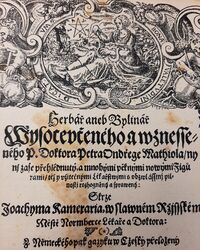 Herbář aneb Bylinář
Wysocevčeného a wznesse-
ného P. Doktora Petra Ondřege Mathiola / ny-
ní zase přehlédnutý a mnohými pěknými nowými Figů-
rami / též y vžitečnými Lékařstwími s obzwlásstní pil-
ností rozhogněný a sprawený:
Skrze
Joachyma Kameraria, w slawném Ržijsském
Městě Normberce Lékaře a Doktora:
Z Německého pak gazyku w Český přeložený